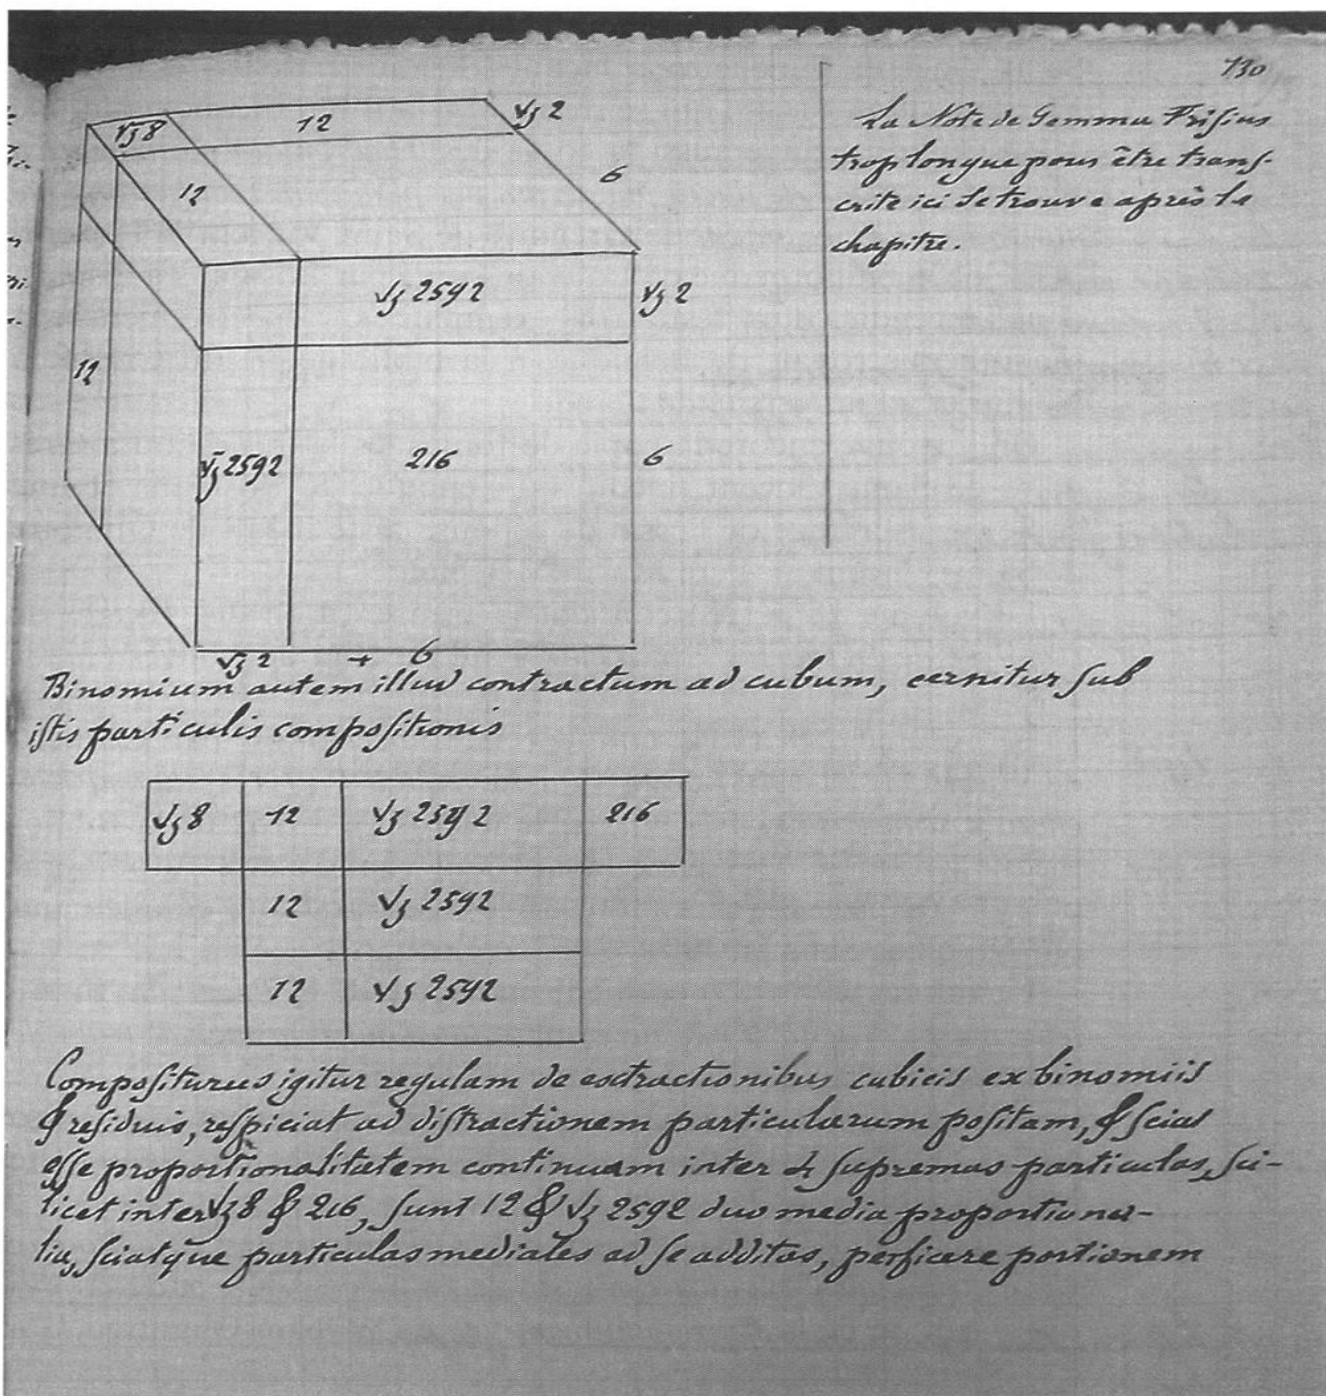 130
La Note de Gemma Frisius
trop longue pour être trans-
crite ici se trouve après le
chapitre.
√ʒ 8
12
√ʒ 2
12
6
√ʒ 2592
√ʒ 2
12
√ʒ 2592
216
6
√ʒ 2 + 6
Binomium autem illud contractum ad cubum, cernitur sub
iſtis particulis compoſitionis
√ʒ 8 12 √ʒ 2592 216
12 √ʒ 2592
12 √ʒ 2592
Compoſiturus igitur regulam de extractionibus cubicis ex binomiis
& reſiduis, reſpiciat ad diſtractionem particularum poſitam, & ſciat
eſſe proportionalitatem continuam inter 4 ſupremas particulas, ſci-
licet inter √ʒ 8 & 216, ſunt 12 & √ʒ 2592 duo media proportiona-
lia, ſciatque particulas mediales ad ſe additas, perficere portionem